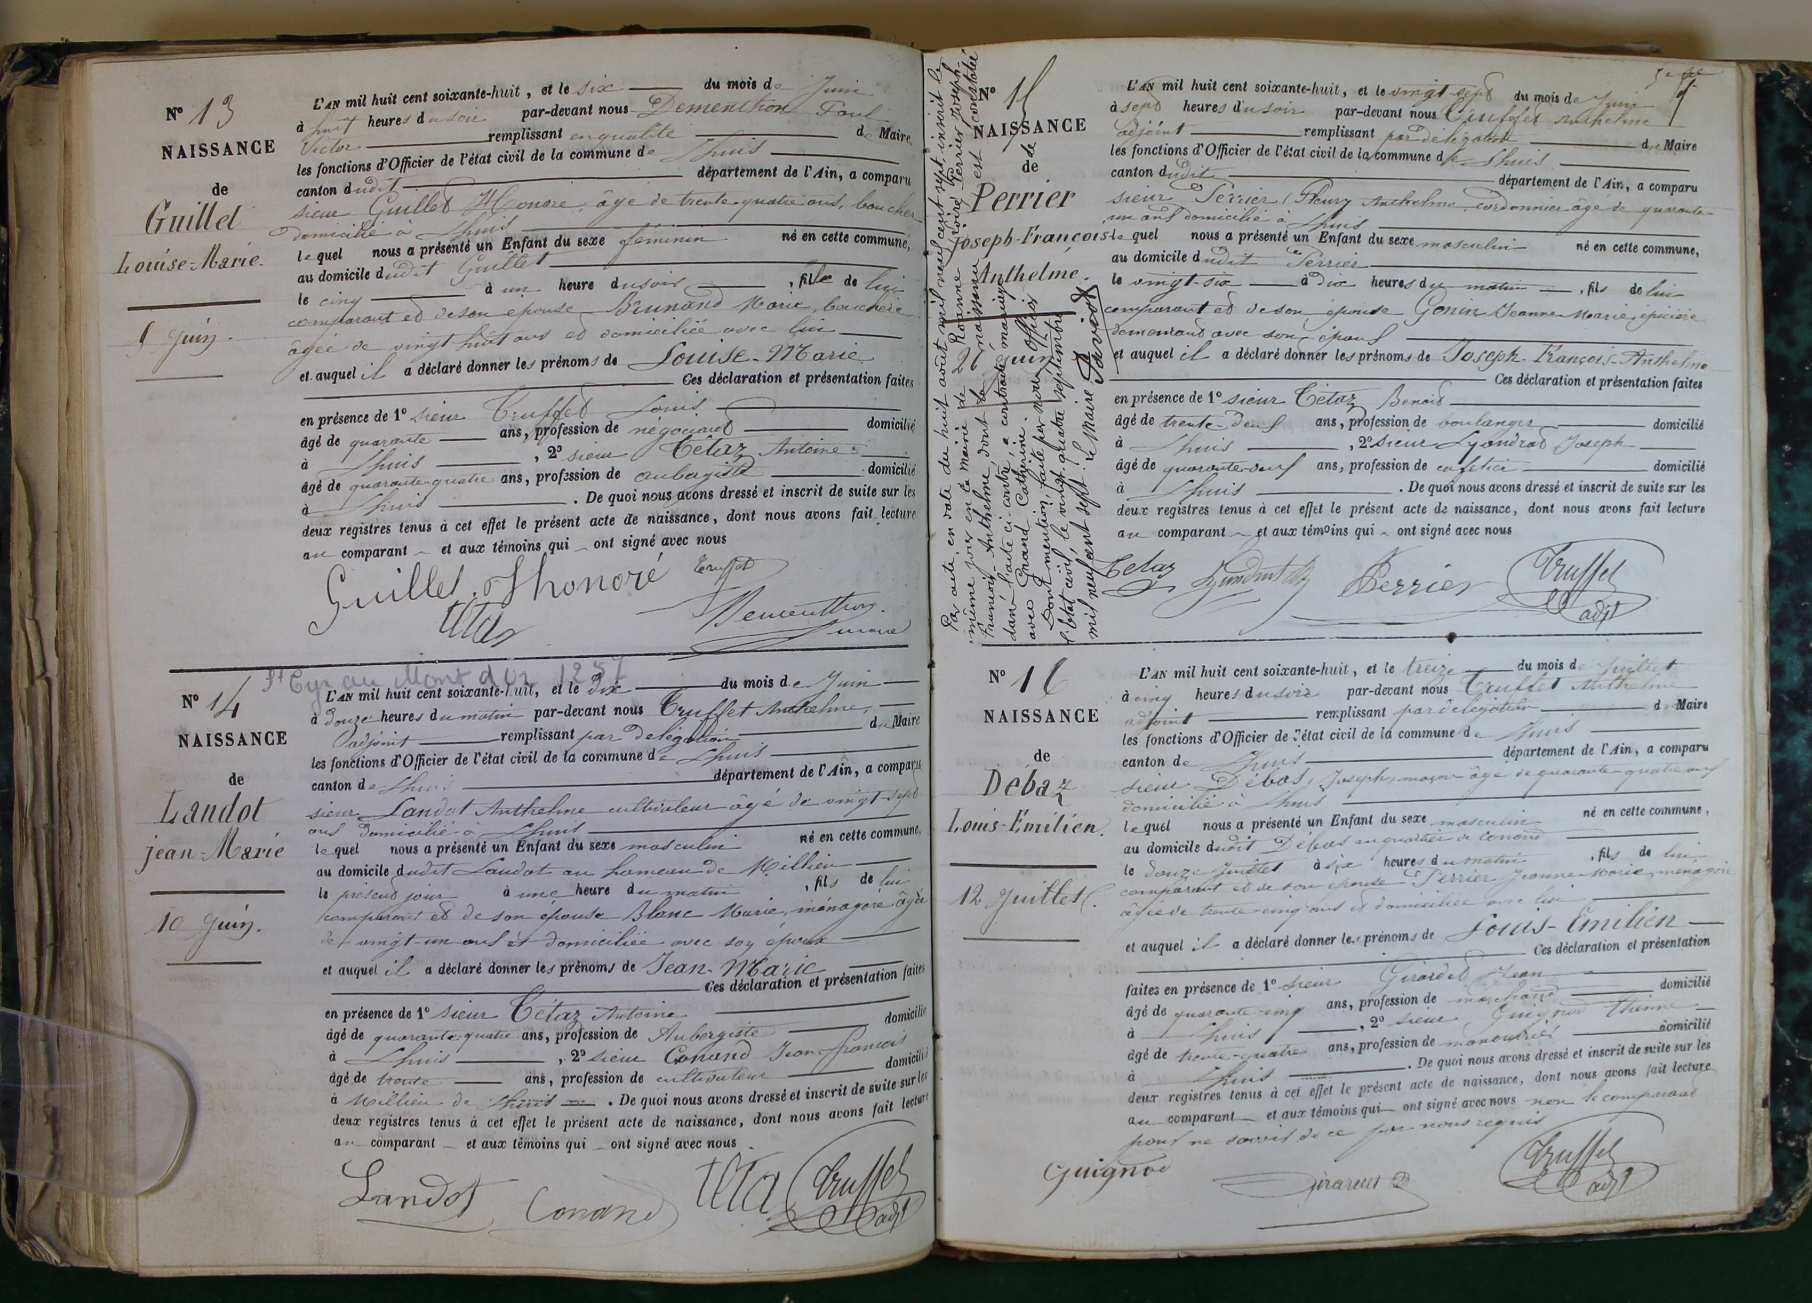 N° 13
NAISSANCE
de
Guillet
Louise-Marie.
5 Juin.
L'AN mil huit cent soixante-huit, et le six du mois de Juin
à huit heures du soir par-devant nous Dementhon Paul
Victor remplissant en qualité de Maire
les fonctions d'Officier de l'état civil de la commune de Lhuis
canton dudit département de l'Ain, a comparu
sieur Guillet Honoré, âgé de trente-quatre ans, boucher
domicilié à Lhuis
lequel nous a présenté un Enfant du sexe féminin né en cette commune,
au domicile dudit Guillet
le cinq à un heure du soir, fille de lui
comparant et de son épouse Brunand Marie, bouchère
âgée de vingt huit ans et domiciliée avec lui
et auquel il a déclaré donner les prénoms de Louise-Marie
Ces déclaration et présentation faites
en présence de 1° sieur Truffet Louis
âgé de quarante ans, profession de négociant domicilié
à Lhuis, 2° sieur Tétaz Antoine
âgé de quarante-quatre ans, profession de aubergiste domicilié
à Lhuis. De quoi nous avons dressé et inscrit de suite sur les
deux registres tenus à cet effet le présent acte de naissance, dont nous avons fait lecture
au comparant et aux témoins qui ont signé avec nous
Guillet honoré Truffet
Tétaz Dementhon
maire
St Cyr au Mont d'Or
N° 14
NAISSANCE
de
Landot
jean-Marie
10 Juin.
L'AN mil huit cent soixante-huit, et le dix du mois de Juin
à douze heures du matin par-devant nous Truffet Anthelme,
adjoint remplissant par délégation de Maire
les fonctions d'Officier de l'état civil de la commune de Lhuis
canton de Lhuis département de l'Ain, a comparu
sieur Landot Anthelme cultivateur âgé de vingt-sept
ans domicilié à Lhuis
lequel nous a présenté un Enfant du sexe masculin né en cette commune,
au domicile dudit Landot au hameau de Millieu
le présent jour à une heure du matin, fils de lui
comparant et de son épouse Blanc Marie, ménagère âgée
de vingt-un ans et domiciliée avec son époux
et auquel il a déclaré donner les prénoms de Jean-Marie
Ces déclaration et présentation faites
en présence de 1° sieur Tétaz Antoine
âgé de quarante-quatre ans, profession de Aubergiste domicilié
à Lhuis, 2° sieur Conand Jean-françois
âgé de trente ans, profession de cultivateur domicilié
à Millieu de Lhuis. De quoi nous avons dressé et inscrit de suite sur les
deux registres tenus à cet effet le présent acte de naissance, dont nous avons fait lecture
au comparant et aux témoins qui ont signé avec nous
Landot Conand Tétaz Truffet
adjt
Par acte en date du huit août mil neuf cent sept, inscrit le
même jour en la mairie de Roanne (Loire) Perrier Joseph
François Anthelme dont la naissance est constatée
dans l'acte ci-contre, a contracté mariage
avec Grand Catherine.
Dont mention, faite par nous Officier
de l'état civil, le vingt quatre septembre
mil neuf cent sept. Le Maire
N° 15
NAISSANCE
de
Perrier
Joseph-François
Anthelme.
26 juin
L'AN mil huit cent soixante-huit, et le vingt-sept du mois de Juin
à sept heures du soir par-devant nous Truffet Anthelme
adjoint remplissant par délégation de Maire
les fonctions d'Officier de l'état civil de la commune de Lhuis
canton dudit département de l'Ain, a comparu
sieur Perrier, Fleury Anthelme cordonnier âgé de quarante
un ans domicilié à Lhuis
lequel nous a présenté un Enfant du sexe masculin né en cette commune,
au domicile dudit Perrier
le vingt-six à dix heures du matin, fils de lui
comparant et de son épouse Gonin Jeanne-Marie, épicière
demeurant avec son époux
et auquel il a déclaré donner les prénoms de Joseph-François-Anthelme
Ces déclaration et présentation faites
en présence de 1° sieur Tétaz Benoît
âgé de trente-deux ans, profession de boulanger domicilié
à Lhuis, 2° sieur Joseph
âgé de quarante-neuf ans, profession de cafetier domicilié
à Lhuis. De quoi nous avons dressé et inscrit de suite sur les
deux registres tenus à cet effet le présent acte de naissance, dont nous avons fait lecture
au comparant et aux témoins qui ont signé avec nous
Tetaz Perrier Truffet
adjt
N° 16
NAISSANCE
de
Débaz
Louis-Émilien.
12 Juillet.
L'AN mil huit cent soixante-huit, et le treize du mois de Juillet
à cinq heures du soir par-devant nous Truffet Anthelme
adjoint remplissant par délégation de Maire
les fonctions d'Officier de l'état civil de la commune de Lhuis
canton de Lhuis département de l'Ain, a comparu
sieur Débas, Joseph, maçon âgé de quarante-quatre ans
domicilié à Lhuis
lequel nous a présenté un Enfant du sexe masculin né en cette commune,
au domicile dudit Débas au quartier de Conand
le douze Juillet à six heures du matin, fils de lui
comparant et de son épouse Perrier Jeanne-Marie, ménagère
âgée de trente-cinq ans et domiciliée avec lui
et auquel il a déclaré donner les prénoms de Louis-Émilien
Ces déclaration et présentation
faites en présence de 1° sieur Girardet Jean
âgé de quarante-cinq ans, profession de marchand domicilié
à Lhuis, 2° sieur Guignod
âgé de trente-quatre ans, profession de domicilié
à Lhuis. De quoi nous avons dressé et inscrit de suite sur les
deux registres tenus à cet effet le présent acte de naissance, dont nous avons fait lecture
au comparant et aux témoins qui ont signé avec nous non le comparant
pour ne savoir de ce par nous requis
Guignod Girardet Truffet
adjt